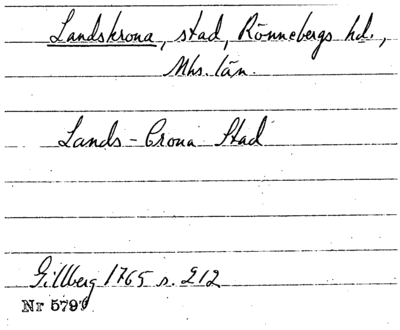 Landskrona, stad, Rönnebergs hd.,
Mhs. län.
Lands-Crona Stad
Gillberg 1765 s. 212
Nr 5799